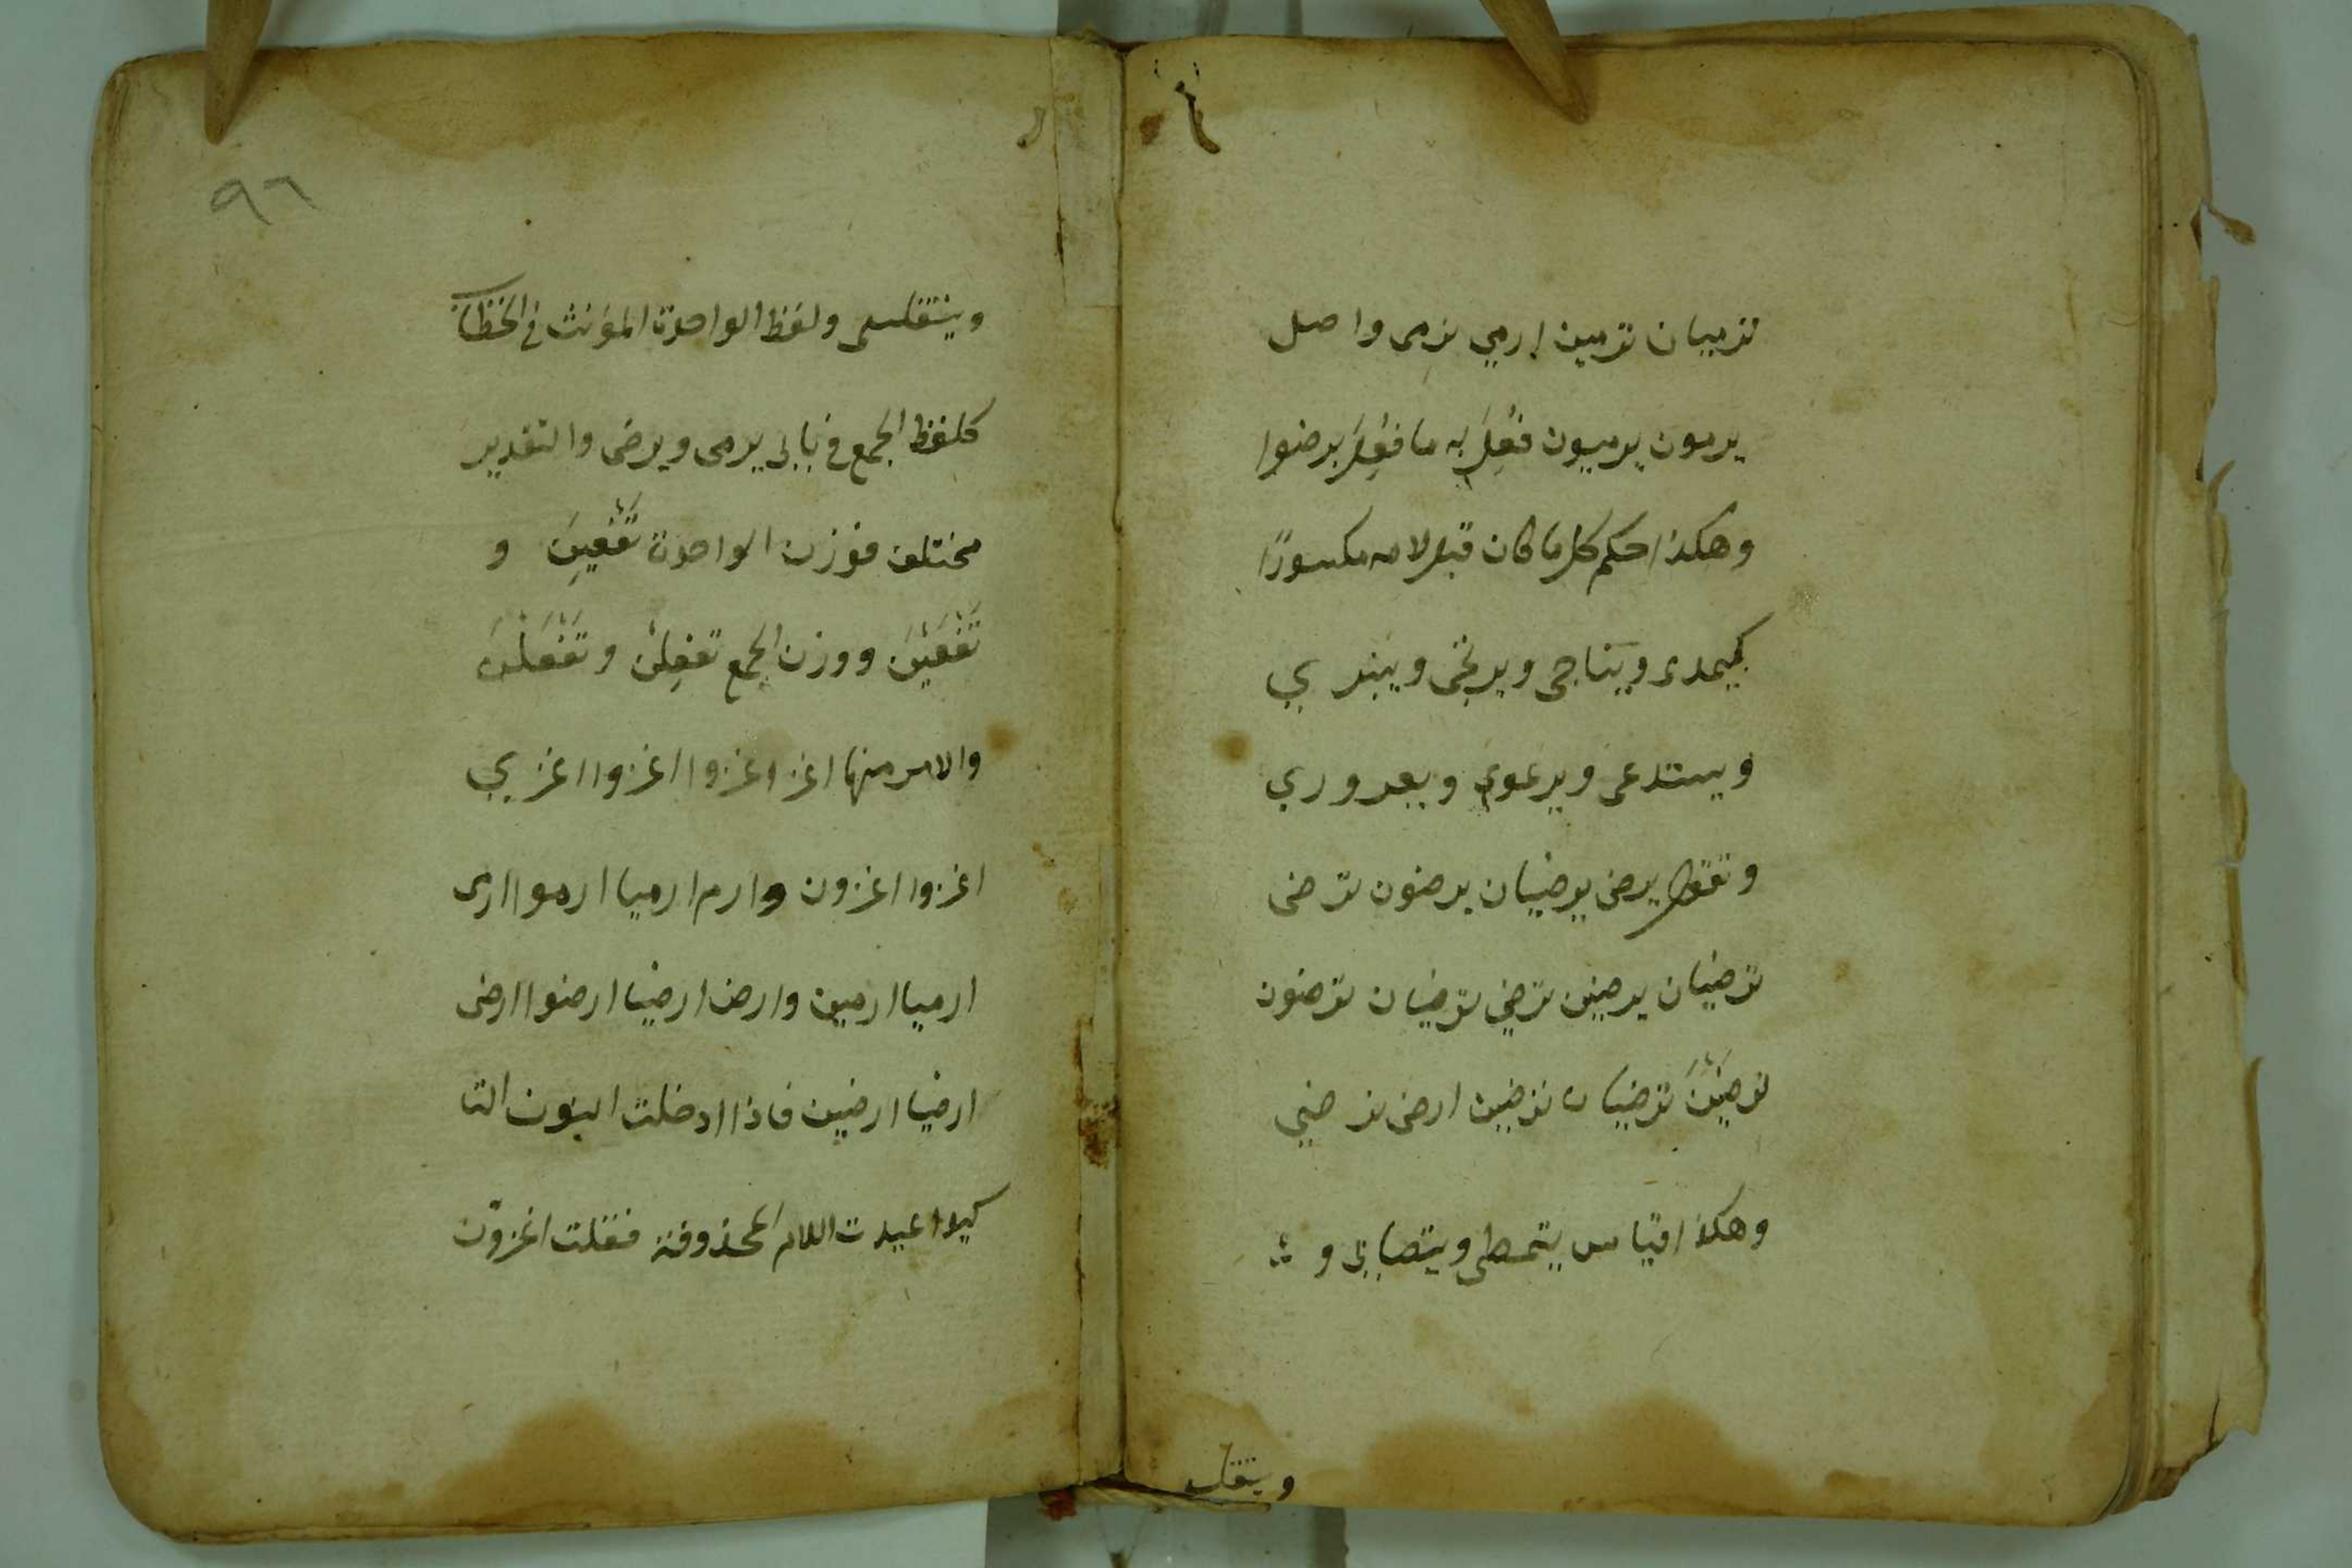 ترميان ترمين ارمي نرمى واصل
يرمون يرميون فَفُعِلَ به ما فُعِلَ برضوا
وهكذا حكم كل ما كان قبل لامه مكسورًا
كيهدى ويناجى ويرتجى وينبري
ويستدعى ويرعوى ويعروري
وتقول يرضى يرضيان يرضون ترضى
ترضيان يرضين ترضى ترضيان ترضون
ترضَيْنَ ترضيان ترضين ارضى نرضي
وهكذا قياس يتمطى ويتصابى و
ويتقلسى
ويتقلسى ولفظ الواحدة المؤنث في الخطاب
كلفظ الجمع في بابى يرمى ويرضى والتقدير
مختلف فوزن الواحدة تَفْعِينَ و
تَفْعَيْنَ ووزن الجمع تفعِلْن وتَفْعَلْنَ
والامر منها اغز اغزوا اغزوا اغزي
اغزوا اغزون وارم ارميا ارموا ارمى
ارميا ارمين وارض ارضيا ارضوا ارضى
ارضيا ارضين فاذا ادخلت النون التا
كيد اعيدت اللام المحذوفة فقلت اغزوَنّ
٩٦